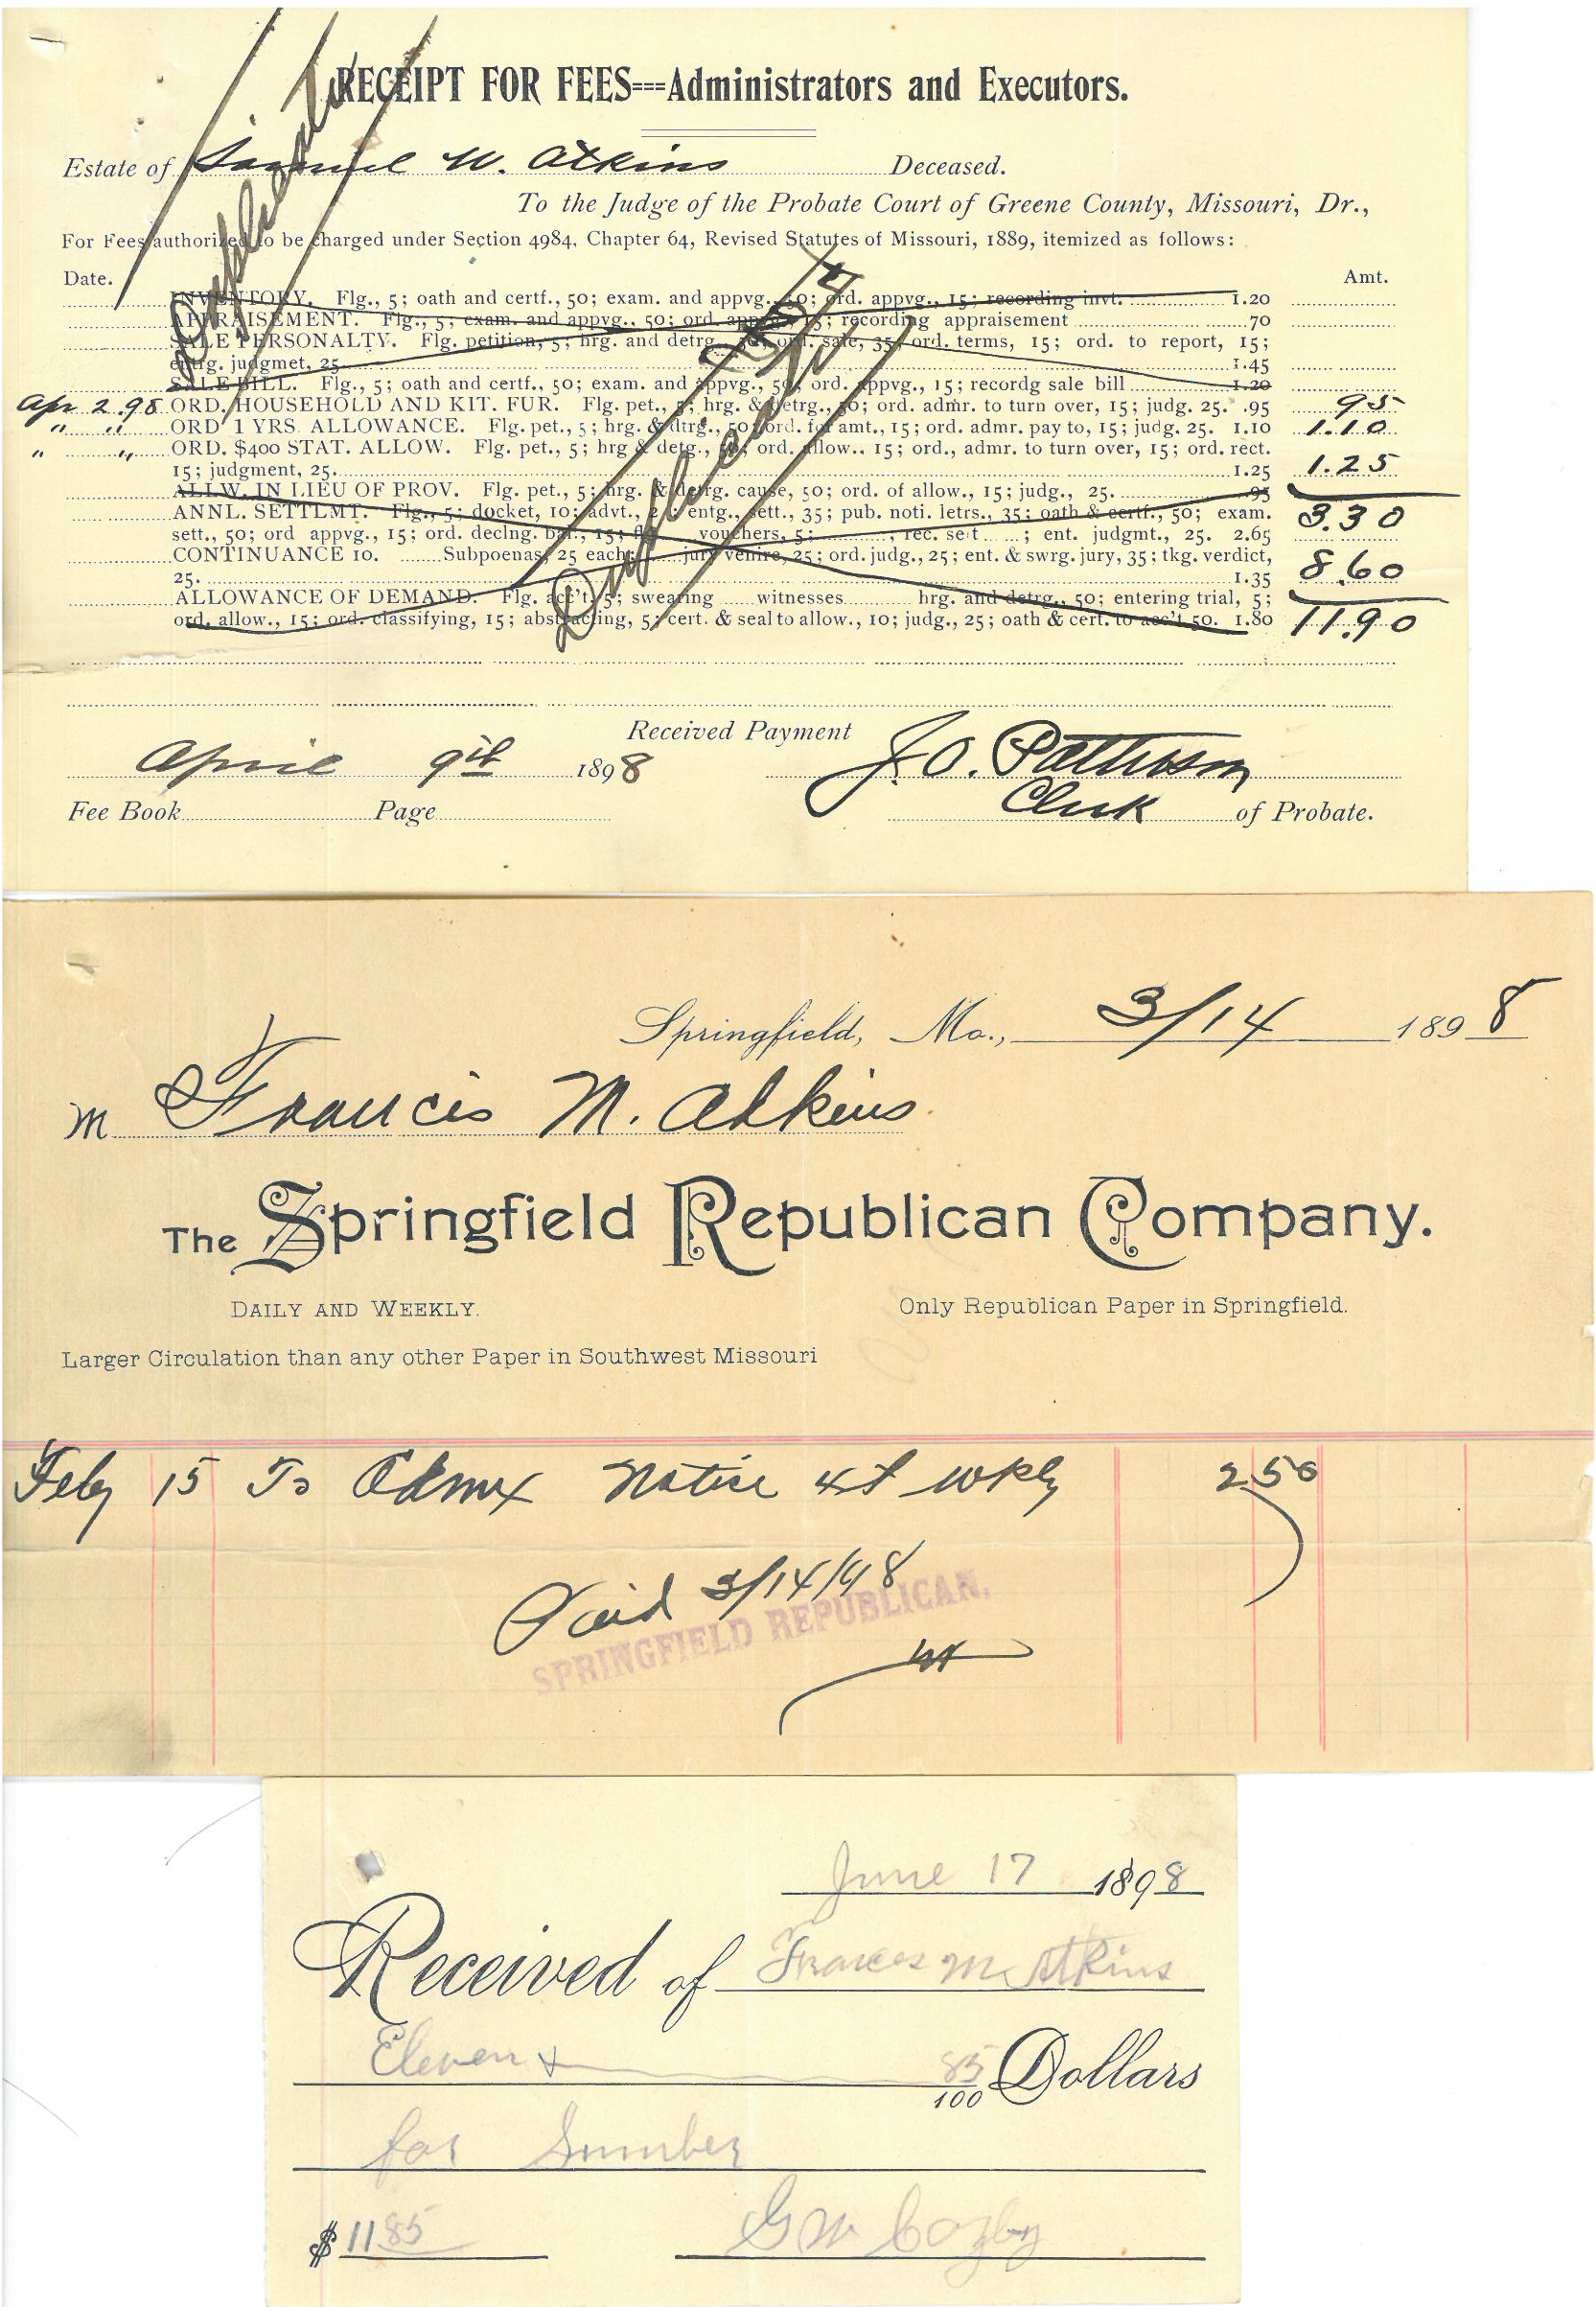 RECEIPT FOR FEES===Administrators and Executors.
Estate of Samuel W. Atkins Deceased.
To the Judge of the Probate Court of Greene County, Missouri, Dr.,
For Fees authorized to be charged under Section 4984, Chapter 64, Revised Statutes of Missouri, 1889, itemized as follows:
Date. Amt.
INVENTORY. Flg., 5; oath and certf., 50; exam. and appvg., 50; ord. appvg., 15; recording invt. 1.20
APPRAISEMENT. Flg., 5; exam. and appvg., 50; ord. appvg., 15; recording appraisement 70
SALE PERSONALTY. Flg. petition, 5; hrg. and detrg., 50; ord. sale, 35; ord. terms, 15; ord. to report, 15;
entrg. judgmet, 25 1.45
SALE BILL. Flg., 5; oath and certf., 50; exam. and appvg., 50, ord. appvg., 15; recordg sale bill 1.20
Apr 2.98 ORD. HOUSEHOLD AND KIT. FUR. Flg. pet., 5; hrg. & detrg., 50; ord. admr. to turn over, 15; judg. 25. .95 95
" " ORD 1 YRS. ALLOWANCE. Flg. pet., 5; hrg. & dtrg., 50; ord. for amt., 15; ord. admr. pay to, 15; judg. 25. 1.10 1.10
" " ORD. $400 STAT. ALLOW. Flg. pet., 5; hrg & detg., 50; ord. allow.. 15; ord., admr. to turn over, 15; ord. rect.
15; judgment, 25. 1.25 1.25
ALLW. IN LIEU OF PROV. Flg. pet., 5; hrg. & detrg. cause, 50; ord. of allow., 15; judg., 25. .95
ANNL. SETTLMT. Flg., 5; docket, 10; advt., entg., sett., 35; pub. noti. letrs., 35; oath & certf., 50; exam. 3.30
sett., 50; ord appvg., 15; ord. declng. bal., 15; vouchers, 5; ; rec. sett ; ent. judgmt., 25. 2.65
CONTINUANCE 10. Subpoenas, 25 each; jury venire, 25; ord. judg., 25; ent. & swrg. jury, 35; tkg. verdict,
25. 1.35 8.60
ALLOWANCE OF DEMAND. Flg. acc't, 5; swearing witnesses hrg. and detrg., 50; entering trial, 5;
ord. allow., 15; ord. classifying, 15; abstracting, 5; cert. & seal to allow., 10; judg., 25; oath & cert. to acc't 50. 1.80 11.90
Duplicate
Duplicate
Received Payment
April 9th 1898 J. O. Patterson
Fee Book Page Clerk of Probate.
Springfield, Mo., 3/14 1898
M Francis M. Atkins
The Springfield Republican Company.
DAILY AND WEEKLY. Only Republican Paper in Springfield.
Larger Circulation than any other Paper in Southwest Missouri
Feby 15 To Admx Notice 4t wkly 2 50
Paid 3/14/98
SPRINGFIELD REPUBLICAN.
June 17 1898
Received of Frances M Atkins
Eleven & 85/100 Dollars
for Lumber
$ 11 85 G W Cozby